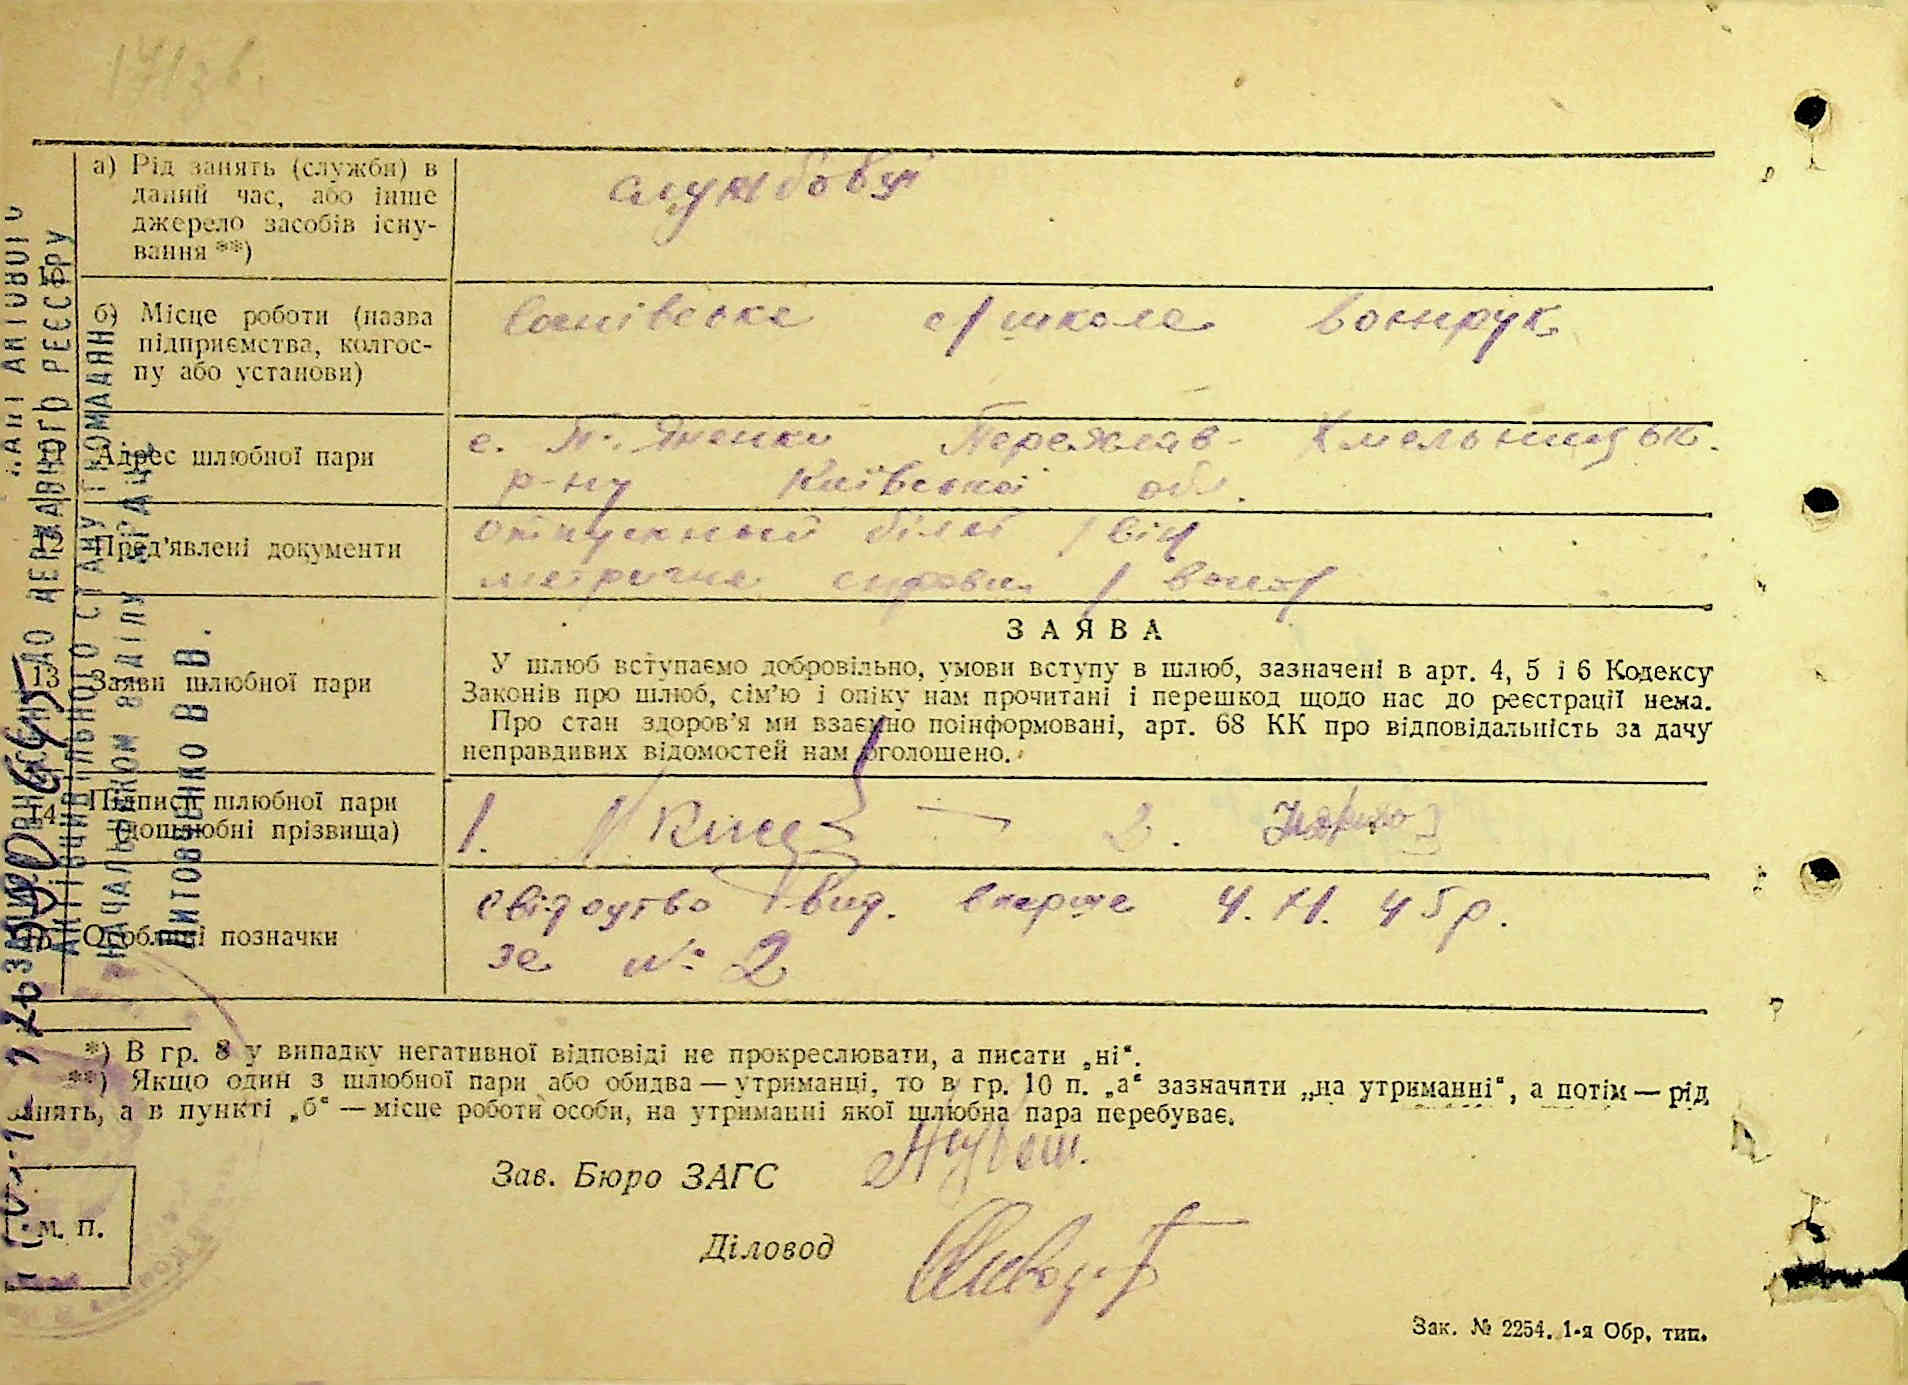 171зв.
а) Рід занять (служби) в
даний час, або інше
джерело засобів існу-
вання **)
службовці
б) Місце роботи (назва
підприємства, колгос-
пу або установи)
с/школа воєнрук
11 Адрес шлюбної пари
с. П. Яненки Переяслав-Хмельницьк.
р-ну Київської обл.
Пред'явлені документи
отпускный білет / він
метрична / вона /
13 Заяви шлюбної пари
ЗАЯВА
У шлюб вступаємо добровільно, умови вступу в шлюб, зазначені в арт. 4, 5 і 6 Кодексу
Законів про шлюб, сім'ю і опіку нам прочитані і перешкод щодо нас до реєстрації нема.
Про стан здоров'я ми взаємно поінформовані, арт. 68 КК про відповідальність за дачу
неправдивих відомостей нам оголошено.
14 Підписи шлюбної пари
(дошлюбні прізвища)
1. 2.
15 Особливі позначки
свідоцтво вид. вперше 4.XI.45р.
за № 2
*) В гр. 8 у випадку негативної відповіді не прокреслювати, а писати „ні“.
**) Якщо один з шлюбної пари або обидва — утриманці, то в гр. 10 п. „а“ зазначити „на утриманні“, а потім — рід
занять, а в пункті „б“ — місце роботи особи, на утриманні якої шлюбна пара перебуває.
Зав. Бюро ЗАГС
Діловод
М. П.
Зак. № 2254. 1-я Обр, тип.
ДО ДЕРЖАВНОГО РЕЄСТРУ
АКТІВ ЦИВІЛЬНОГО СТАНУ ГРОМАДЯН
НАЧАЛЬНИКОМ ВІДДІЛУ ДРАЦС
ЛИТОВЧЕНКО В.В.